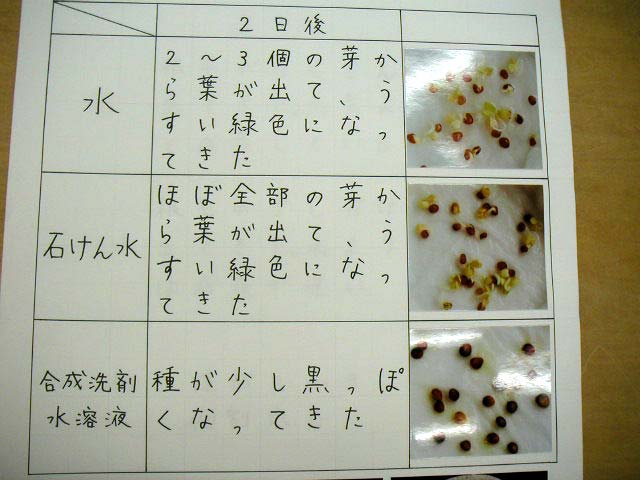 2日後
水
2～3個の芽か
ら葉が出て、う
すい緑色になっ
てきた
石けん水
ほぼ全部の芽か
ら葉が出て、う
すい緑色になっ
てきた
合成洗剤
水溶液
種が少し黒っぽ
くなってきた